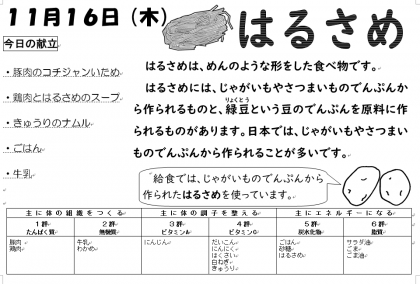 11月16日（木）
はるさめ
今日の献立
・豚肉のコチジャンいため
・鶏肉とはるさめのスープ
・きゅうりのナムル
・ごはん
・牛乳
はるさめは、めんのような形をした食べ物です。
はるさめには、じゃがいもやさつまいものでんぷんか
ら作られるものと、緑豆という豆のでんぷんを原料に作
りょくとう
られるものがあります。日本では、じゃがいもやさつまい
ものでんぷんから作られることが多いです。
給食では、じゃがいものでんぷんから
作られたはるさめを使っています。
主に体の組織をつくる 主に体の調子を整える 主にエネルギーになる
1群 2群 3群 4群 5群 6群
たんぱく質 無機質 ビタミンA ビタミンC 炭水化物 脂質
豚肉 牛乳 にんじん だいこん ごはん サラダ油
鶏肉 わかめ にんにく 砂糖 ごま
はくさい はるさめ ごま油
白ねぎ
きゅうり